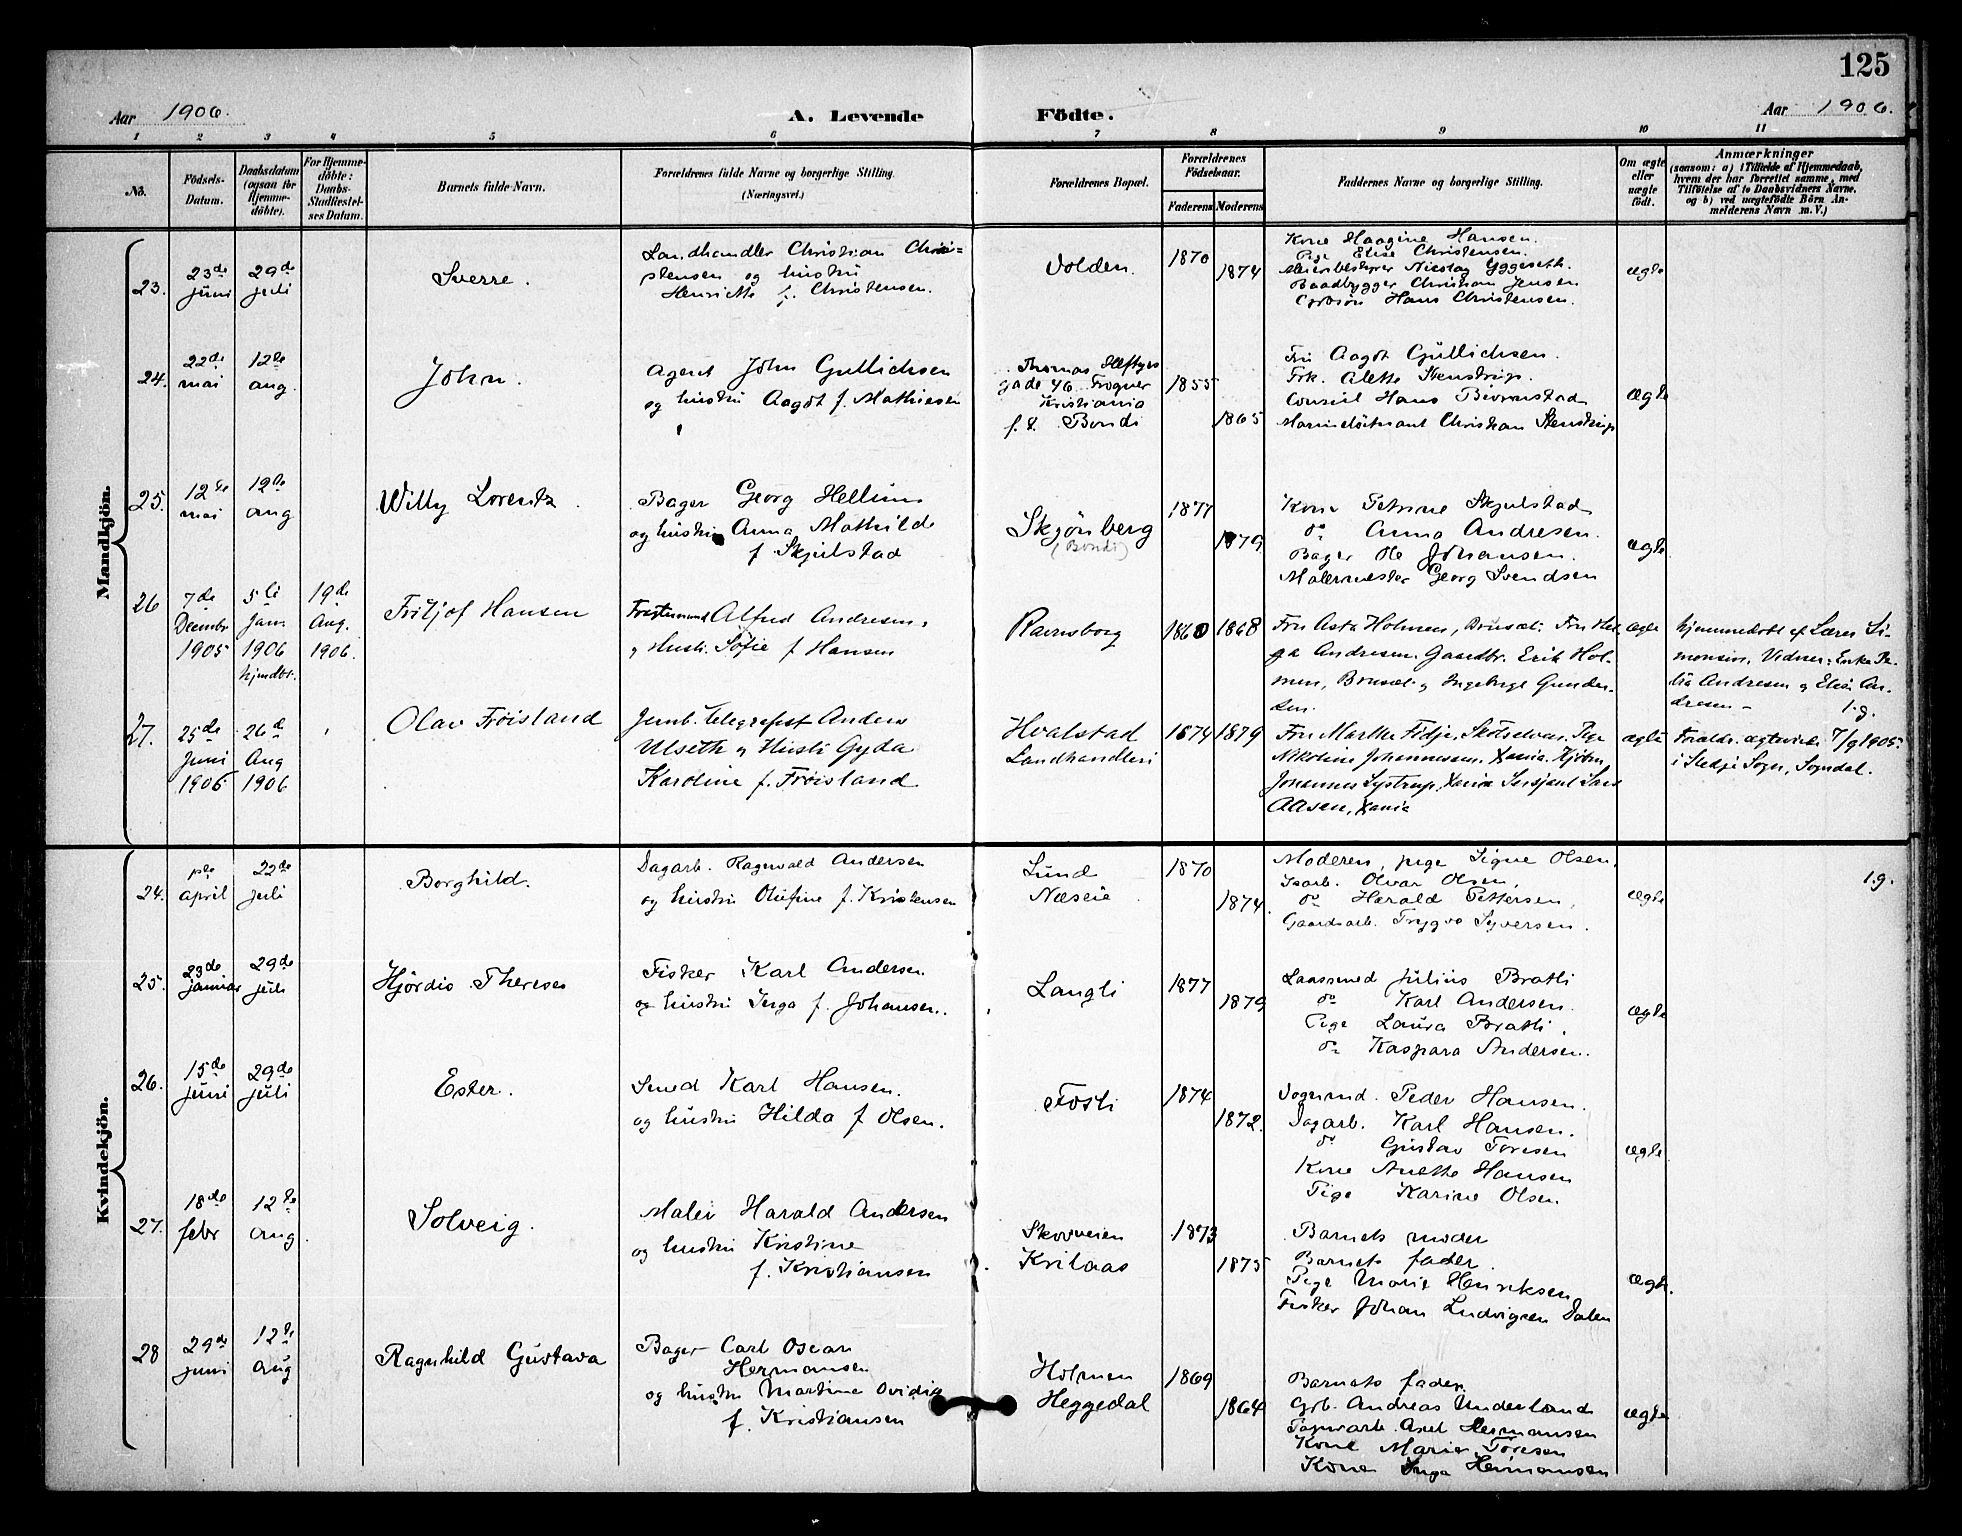 125
Aar 1906.
A. Levende
Födte.
Aar 1906.
1 2 3 4 5 6 7 8 9 10 11
No.
Födsels-Datum.
Daabsdatum (ogsaa for Hjemmedöbte).
For Hjemmedöbte: Daabs-Stadfæstelses Datum.
Barnets fulde Navn.
Forældrenes fulde Navne og borgerlige Stilling.
(Næringsvei.)
Forældrenes Bopæl.
Forældrenes Födselsaar.
Faderens Moderens
Faddernes Navne og borgerlige Stilling.
Om ægte eller uægte födt.
Anmærkninger
(saasom: a) i Tilfælde af Hjemmedaab,
hvem der har forrettet samme, med
Tilföielse af to Daabsvidners Navne,
og b) ved uægtefödte Börn An-
melderens Navn m. V.)
Mandkjön.
23.
23de juni
29de juli
Sverre.
Landhandler Christian Chri=
stensen og hustru
Henriette f. Christensen.
Volden.
1870
1874
Kone Haagine Hansen.
Pige Elise Christensen.
Meieribestyrer Nicolay Yggeseth.
Baadbygger Christian Jensen
Hans Christensen.
ægte
24.
22de mai
12te aug.
John.
Agent John Gullichsen
og hustru Aagot f. Mathiesen
Thomas Heftyes
gade 46 Frogner
Kristiania
f. t. Bondi
1855
1865
Fru Aagot Gullichsen.
Frk. Alette Stenstrup.
Consul Hans Biørnstad
Marineløitnant Christian Stenstrup
ægte
25.
12te mai
19de aug
Willy Lorentz
Bager Georg Hellum
og hustru Anna Mathilde
f Skjulstad
Skjønberg
(Bondi)
1877
1879
Kone Petrine Skjulstad
do Anna Andresen.
Bager Ole Johansen.
Malermester Georg Svendsen
ægte
26
7de Decembr 1905
5te Jan. 1906 hjmdbt.
19de Aug. 1906.
Fritjof Hansen
Alfred Andresen,
Hustr. Sofie f Hansen
Ravnsborg
1860
1868
Fru Asta Holmen, Fru Hel-
ga Andresen. Gaardbr. Erik Hol-
men, Ingeborg Gunder-
sen.
ægte
hjemmedøbt af Lærer Si-
monsen. Vidner: Enke
Andresen og Elise An-
dresen - 1.g.
27.
25de Juni 1906
26de Aug 1906
Olav Frøisland
Jernb. telegrafist Anders
Ulseth og Hustr. Gyda
Karoline f. Frøisland
Hvalstad
Landhandleri
1874
1879
Fru Marthe Fidje, Skotselven. Pige
Nikoline Johannessen, Xania.
Johannes Systrup, Xania Sersjant Lars
Aasen, Xania
ægte
Foreldr. ægteviede 7/9 1905
i Stedje Sogn, Sogndal.
Kvindekjön.
24.
april
22de juli
Borghild.
Dagarb. Ragnvald Andersen
og hustru Olufine f. Kristensen
Lund
Næseie
1870
1874.
Moderen, pige Signe Olsen.
Isarb. Olvar Olsen,
do Harald Pettersen,
Gaardsarb. Trygve Syversen.
ægte
1.g.
25.
23de januar
29de juli
Hjørdis Therese
Fisker Karl Andersen
og hustru Inga f. Johansen.
Langli
1877
1879
Julius Bratli
do Karl Andersen
Pige Laura Bratli.
do Kaspara Andersen.
ægte
26.
15de juni
29de juli
Ester.
Smed Karl Hansen.
og hustru Hilda f Olsen.
Fosli
1874
1872.
Peder Hansen.
Dagarb. Karl Hansen.
do Gustav Toresen
Kone Anette Hansen
Pige Karine Olsen.
ægte
27.
18de febr
12te aug.
Solveig.
Maler Harald Andersen
og hustru Kristine
f. Kristiansen
Skovveien
Krilaas
1873
1875
Barnets moder
Barnets fader.
Pige Marie Henriksen
Fisker Johan Ludvigsen Dalen
ægte.
28
29de juni
12te aug
Ragnhild Gustava
Bager Carl Oscar
Hermansen
og hustru Martine Ovidia
f. Kristiansen
Holmen
Heggedal
1869
1864
Barnets fader.
Gbr. Andreas Underland
Papirarb. Axel Hermansen
Kone Marie Toresen
Kone Inga Hermansen
ægte